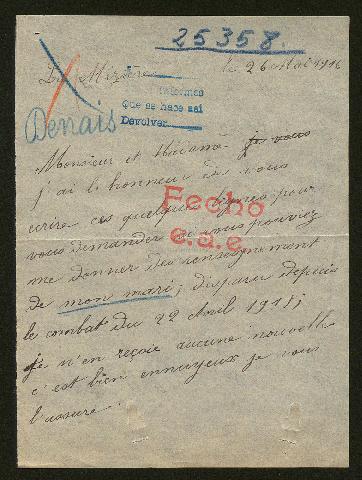 25358.
La Mézière le 26 Mai 1916
informes
Que se hace así
Devolver
Denais
Monsieur et Madame je vous
j'ai l'honneur de vous
écrire ces quelques lignes pour
Fecho
vous demander si vous pouviez
e.a.e
me donner du renseignement
de mon mari, disparu depuis
le combat du 22 Avril 1915;
je n'en reçoie aucune nouvelle
c'est bien ennuyeux je vous
l'assure.